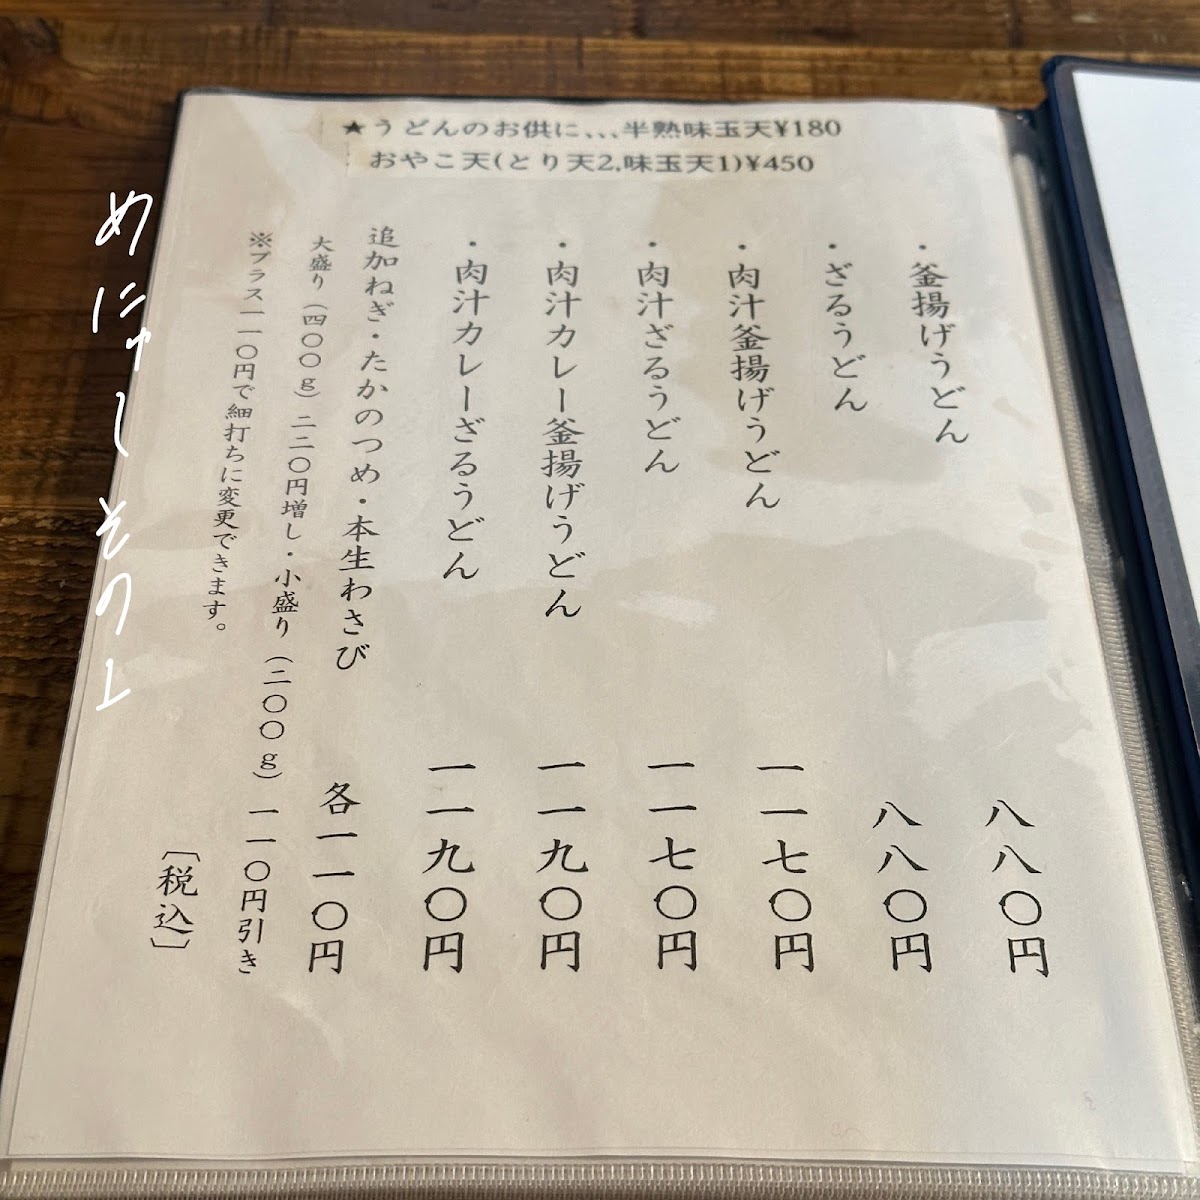 ★うどんのお供に、、、半熟味玉天¥180
おやこ天(とり天2,味玉天1)¥450
・釜揚げうどん 八八〇円
・ざるうどん 八八〇円
・肉汁釜揚げうどん 一一七〇円
・肉汁ざるうどん 一一七〇円
・肉汁カレー釜揚げうどん 一一九〇円
・肉汁カレーざるうどん 一一九〇円
追加ねぎ・たかのつめ・本生わさび 各一一〇円
大盛り（四〇〇g）二二〇円増し・小盛り（二〇〇g）一一〇円引き
※プラス一一〇円で細打ちに変更できます。
［税込］
めにゅーその1